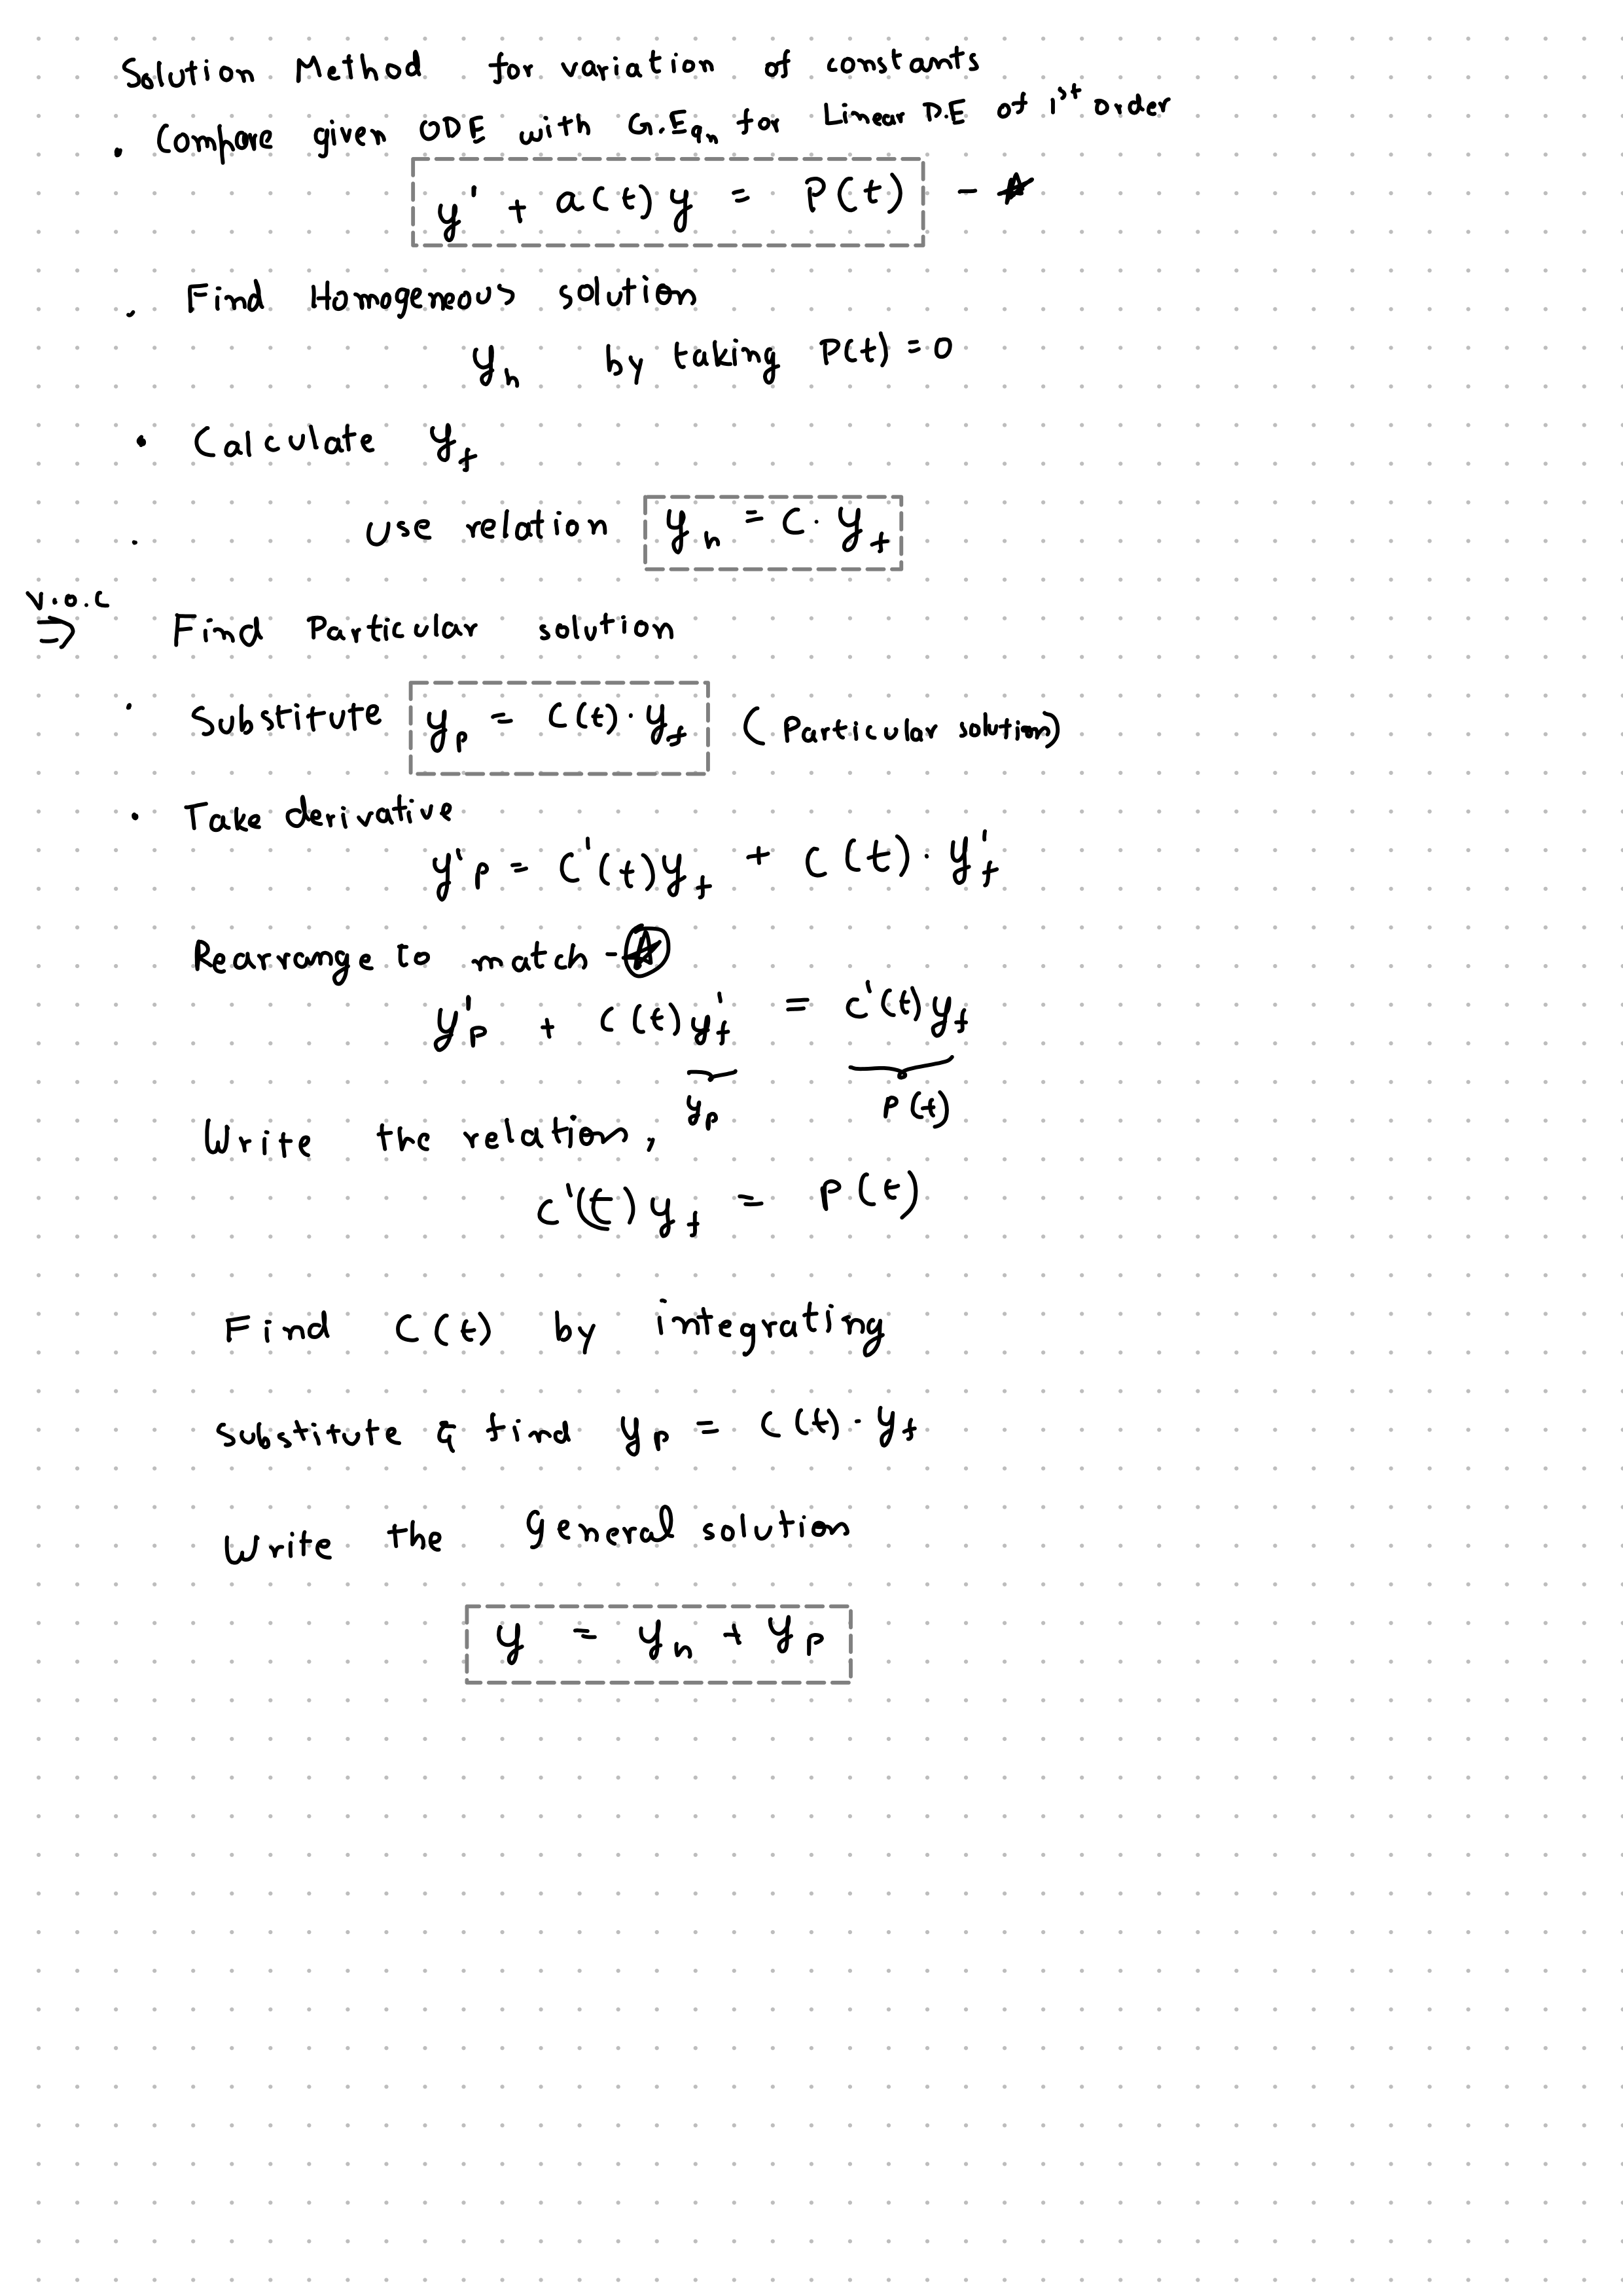 Solution Method for variation of constants
• Compare given ODE with G.Eqn for Linear D.E of 1st order
y' + a(t) y = P(t) - ☆
• Find Homogeneous solution
y_h by taking P(t) = 0
• Calculate y_f
• use relation y_h = C · y_f
V.O.C
⇒ Find Particular solution
• Substitute y_p = C(t) · y_f (Particular solution)
• Take derivative
y'p = C'(t) y_f + C(t) · y'_f
Rearrange to match - ☆
y'_p + C(t) y'_f = C'(t) y_f
y_p P(t)
Write the relation,
C'(t) y_f = P(t)
Find C(t) by integrating
Substitute & find y_p = C(t) · y_f
Write the General solution
y = y_h + y_p